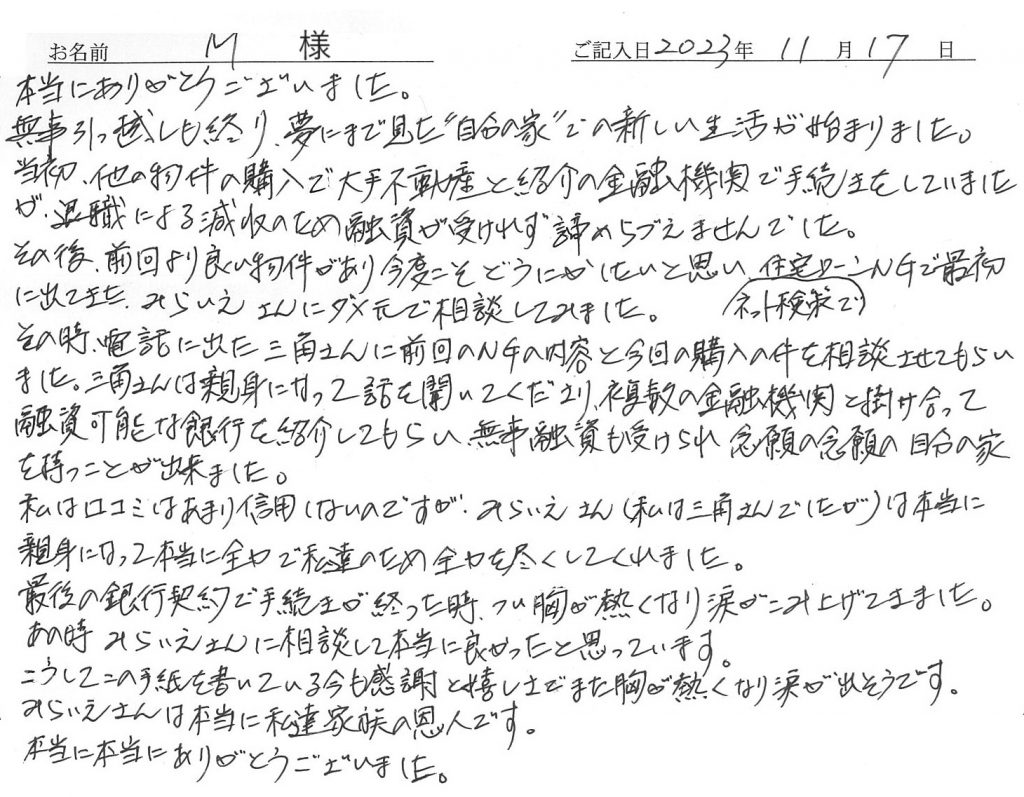 お名前 M 様 ご記入日 2023年 11月 17日
本当にありがとうございました。
無事引っ越しも終り、夢にまで見た"自分の家"での新しい生活が始まりました。
当初、他の物件の購入で大手不動産と紹介の金融機関で手続きをしていました
が、退職による減収のため融資が受けれず諦めらづえませんでした。
その後、前回より良い物件があり今度こそどうにかしたいと思い、住宅ローンNGで最初
に出てきた、みらいえさんにダメ元で相談してみました。
ネット検索で
その時、電話に出た三角さんに前回のNGの内容と今回の購入の件を相談させてもらい
ました。三角さんは親身になって話を聞いてくださり、複数の金融機関と掛け合って
融資可能な銀行を紹介してもらい、無事融資も受けられ念願の念願の自分の家
を持つことが出来ました。
私は口コミはあまり信用しないのですが、みらいえさん(私は三角さんでしたが)は本当に
親身になって本当に全力で私達のため全力を尽くしてくれました。
最後の銀行契約で手続きが終った時、つい胸が熱くなり涙がこみ上げてきました。
あの時みらいえさんに相談して本当に良かったと思っています。
こうしてこの手紙を書いている今も感謝と嬉しさでまた胸が熱くなり涙が出そうです。
みらいえさんは本当に私達家族の恩人です。
本当に本当にありがとうございました。